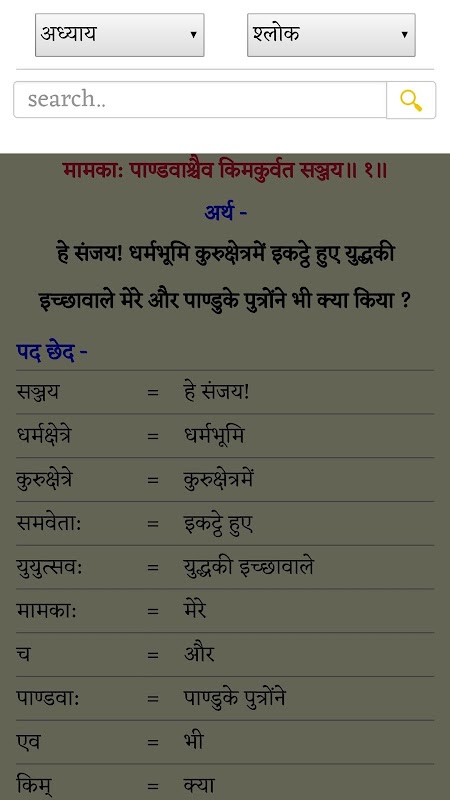 अध्याय ▼ श्लोक ▼
search..
मामकाः पाण्डवाश्चैव किमकुर्वत सञ्जय॥ १॥
अर्थ -
हे संजय! धर्मभूमि कुरुक्षेत्रमें इकट्ठे हुए युद्धकी
इच्छावाले मेरे और पाण्डुके पुत्रोंने भी क्या किया ?
पद छेद -
सञ्जय = हे संजय!
धर्मक्षेत्रे = धर्मभूमि
कुरुक्षेत्रे = कुरुक्षेत्रमें
समवेताः = इकट्ठे हुए
युयुत्सवः = युद्धकी इच्छावाले
मामकाः = मेरे
च = और
पाण्डवाः = पाण्डुके पुत्रोंने
एव = भी
किम् = क्या